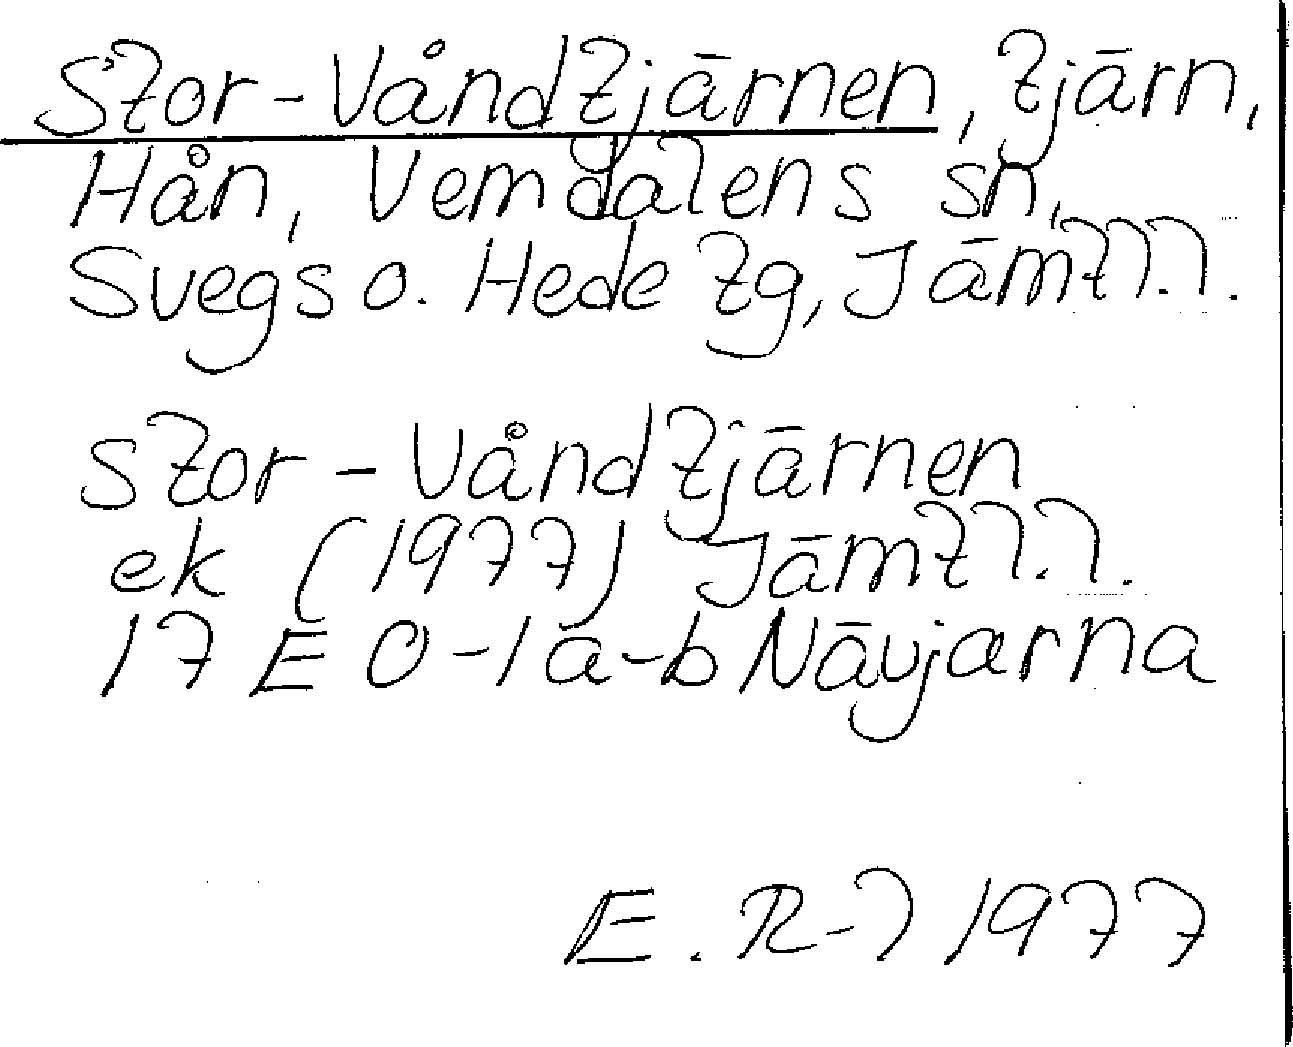 Stor-Våndtjärnen, tjärn,
Hån, Vemdalens sn,
Svegs o. Hede tg, Jämtl. l.
Stor-Våndtjärnen
ek (1977) Jämtl. l.
17 E 0-1a-b Nävjarna
E. R-l 1977